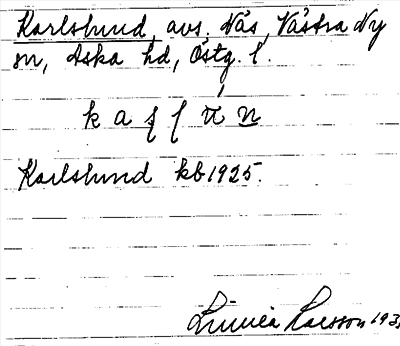 Karlslund, avs. Näs, Västra Ny
sn, Aska hd, Östg. l.
Karlslund kb 1925.
Linnéa Larsson 193